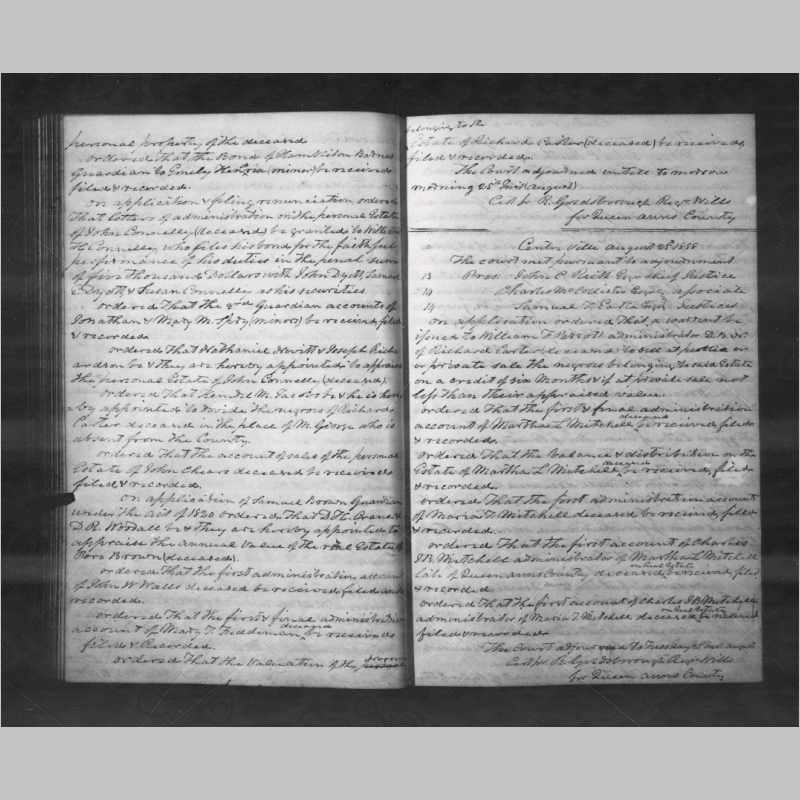 personal property of the deceased
ordered that the Bond of
Guardian to Emely (minor) be received
filed & recorded.
on application & filing renunciation ordered
that letters of administration on the personal Estate
of John Connelly (deceased) be granted to
Connelley, who files his bond for the faithful
performance of his duties in the penal sum
of five thousand Dollars with John Dyott, Samuel
Dyott & Susan Connelly as his securities
ordered that the 2nd Guardian accounts of
Jonathan & Mary M. (minors) be received filed
& recorded
ordered that Nathaniel Hevitt & Joseph Rich
ardson be & they are hereby appointed to appraise
the personal Estate of John Connelley (deceased).
ordered that M. Jacobs be & he is here
by appointed to divide the negroes of Richard
Carter deceased in the place of M. George who is
absent from the County
ordered that the account of sales of the personal
Estate of John Chears deceased be received
filed & recorded.
on application of Samuel Brown Guardian
under the act of 1820 ordered that D. H.
D. R. Woodall be & they are hereby appointed to
appraise the annual value of the real Estate of
Brown (deceased).
ordered that the first administration account
of John W Walls deceased be received filed and
recorded.
ordered that the first & final administration
account of Mary T. deceased be received
filed & Recorded.
ordered that the valuation of the
belonging to the
Estate of Richard Carter (deceased) be received,
filed & recorded.
The Court adjourned untill to morrow
morning 25th Inst (august)
Cert. pr R. Goldsborough Regr Wills
for Queen anns County
Centre Ville august 25th 1858
The court met pursuant to adjournment
13 Pres: John C. Ruth Esqr chief Justice
14 Charles McCollister Esqr associate
14 Samuel T. Earle Esqr Justices
on application ordered that a warrant be
issued to William F. administrator D. B. N.
of Richard Carter (deceased) to sell at public
or private sale the negroes belonging to said Estate
on a credit of six Months & if at private sale not
less than their appraised value.
ordered that the first & final administration
account of Martha L Mitchell deceased be received filed
& recorded.
ordered that the balance & distribution on the
Estate of Martha L Mitchell deceased be received, filed
& recorded.
ordered that the first administration account
of Maria T. Mitchell deceased be received, filed
& recorded.
ordered that the first account of Charles
J. B. Mitchell administrator of Martha L Mitchell
late of Queen anns County deceased on Real Estate be received filed
& recorded
ordered that the first account of Charles J B Mitchell
administrator of Maria T. Mitchell deceased on Real Estate be received
filed & recorded.
The Court adjourned to Tuesday august
Cert. pr R. Goldsborough Regr Wills
for Queen anns County